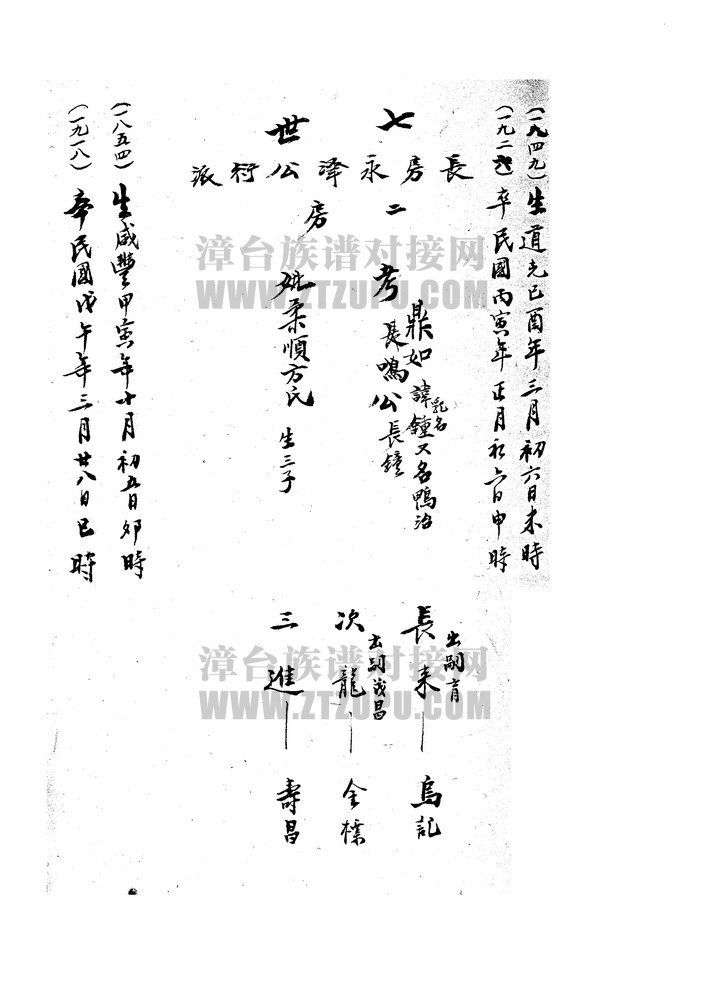 七世
長房永澤公衍派
二房
(一九四九)生道光己酉年三月初六日未時
(一九二六)卒民國丙寅年正月初六日申時
鼎如諱鐘又名鴨治
乳名長鐘
考長鳴公
妣柔順方氏 生三子
(一八五四)生咸豐甲寅年十月初五日卯時
(一九一八)卒民國戊午年三月廿八日巳時
長來 出嗣育 烏記
次龍 出嗣茂昌 金標
三進 壽昌
漳台族谱对接网
WWW.ZTZUPU.COM
漳台族谱对接网
WWW.ZTZUPU.COM